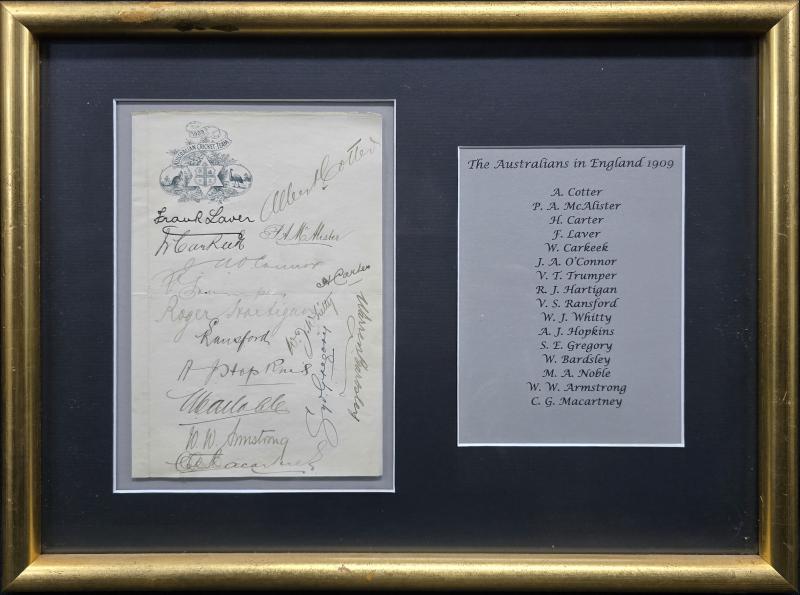 1909
AUSTRALIAN CRICKET TEAM
Albert Cotter
Frank Laver
P A McAlister
W Carkeek
J. A O'Connor
H Carter
Roger Hartigan
W. J. Whitty
Warren Bardsley
Ransford
Syd Gregory
A J Hopkins
M A Noble
W. W. Armstrong
C G Macartney
The Australians in England 1909
A. Cotter
P. A. McAlister
H. Carter
F. Laver
W. Carkeek
J. A. O'Connor
V. T. Trumper
R. J. Hartigan
V. S. Ransford
W. J. Whitty
A. J. Hopkins
S. E. Gregory
W. Bardsley
M. A. Noble
W. W. Armstrong
C. G. Macartney